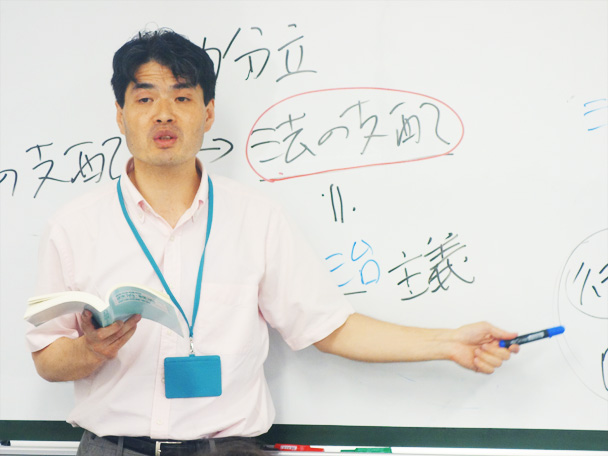 分立
の支配 → 法の支配
治主義